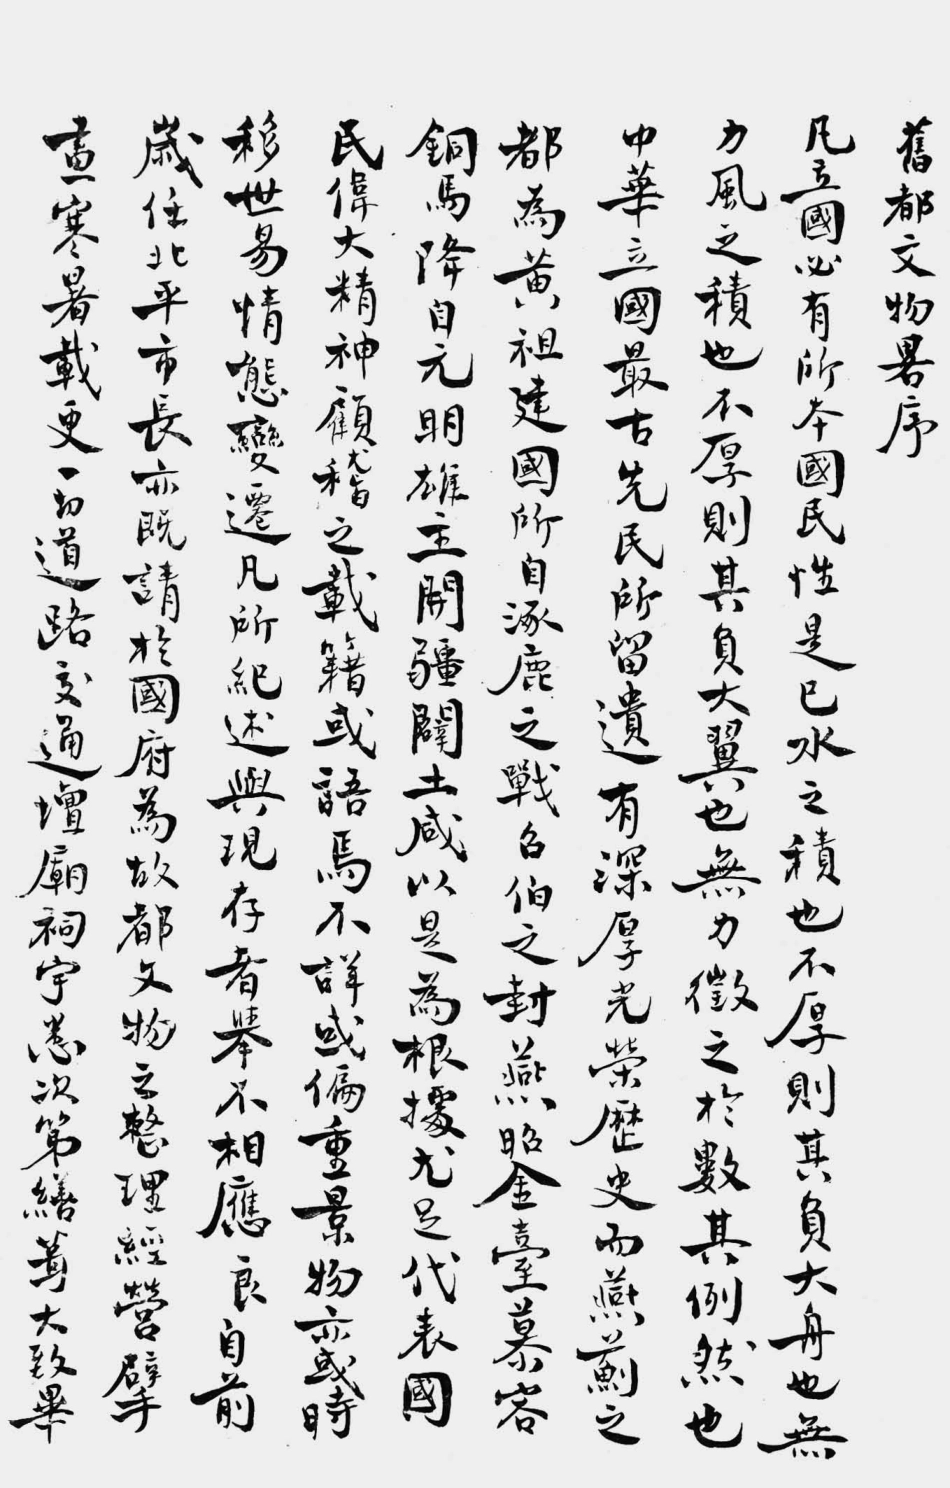 舊都文物畧序
凡立國必有所本國民性是已水之積也不厚則其負大舟也無
力風之積也不厚則其負大翼也無力徵之於數其例然也
中華立國最古先民所留遺有深厚光榮歷史而燕薊之
都為黃祖建國所自涿鹿之戰召伯之封燕昭金臺慕容
銅馬降自元明雄主開疆闢土咸以是為根據尤足代表國
民偉大精神顧稽之載籍或語焉不詳或偏重景物亦或時
移世易情態變遷凡所紀述與現存者舉不相應良自前
歲任北平市長亦既請於國府為故都文物之整理經營擘
畫寒暑載更一切道路交通壇廟祠宇悉次第繕葺大致畢